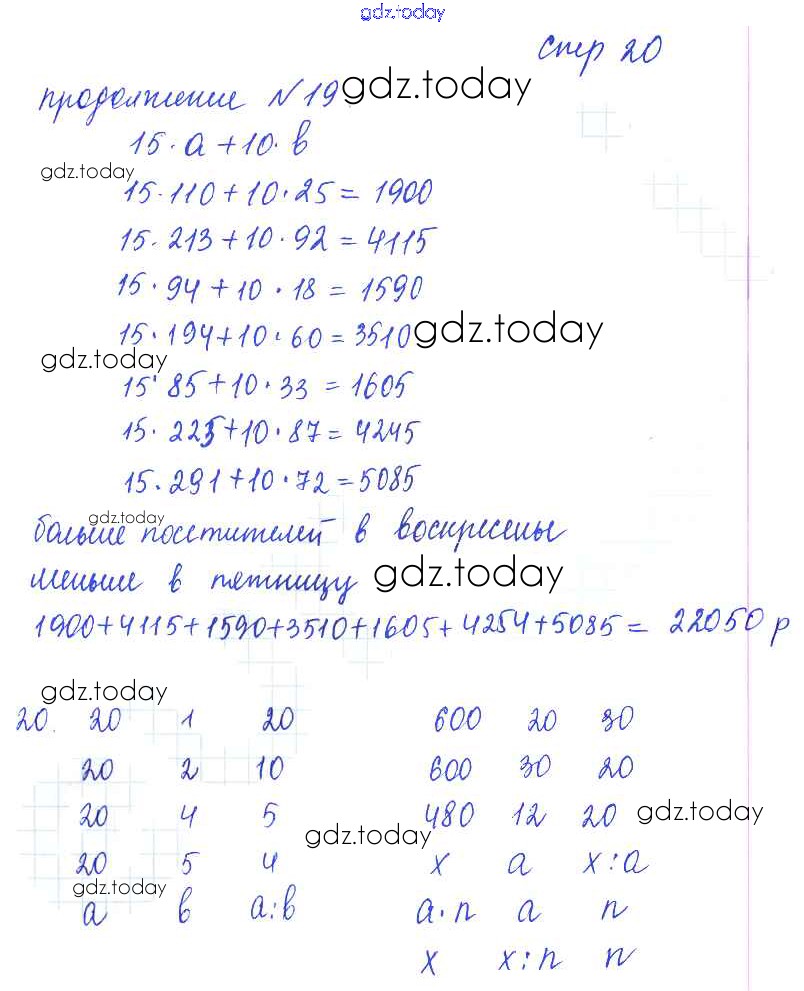 gdz.today
стр 20
продолжение №19 gdz.today
15·a+10·b
gdz.today
15·110+10·25=1900
15·213+10·92=4115
15·94+10·18=1590
15·194+10·60=3510 gdz.today
gdz.today
15·85+10·33=1605
15·225+10·87=4245
15·291+10·72=5085
gdz.today
больше посетителей в воскресены
меньше в петницу gdz.today
1900+4115+1590+3510+1605+4254+5085=22050 р
gdz.today
20. 20 1 20 600 20 30
20 2 10 600 30 20
20 4 5 480 12 20 gdz.today
gdz.today
20 5 4 x a x:a
gdz.today
a b a:b a·n a n
x x:n n